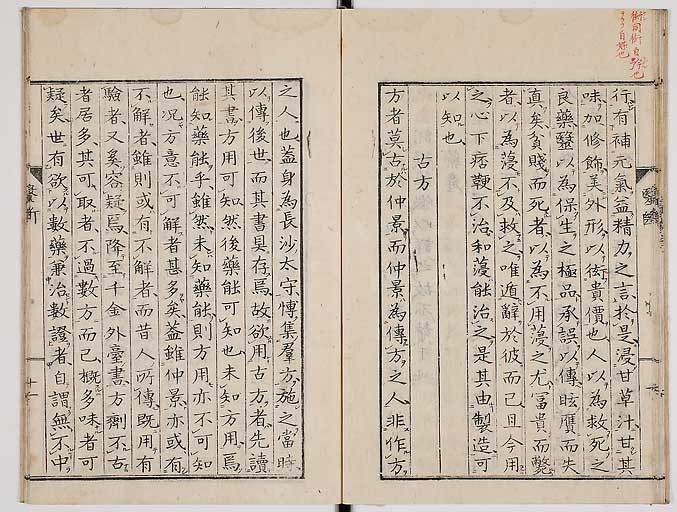 行有補元氣益精力之言於是浸甘草汁甘其
味加修飾美外形以衒貴價也人以為救死之
良藥毉以為保生之極品承誤以傳眩贋而失
真矣貧賤而死者以為不用蓡之尤冨貴而斃
者以為蓡不及救之唯遁辭於彼而已且今用
之心下痞鞕不治和蓡能治之是其由製造可
以知也
古方
方者莫古於仲景而仲景為傳方之人非作方
之人也蓋身為長沙太守慱集羣方施之當時
以傳後世而其書具存焉故欲用古方者先讀
其書方用可知然後藥能可知也未知方用焉
能知藥能乎雖然未知藥能則方用亦不可知
也况方意不可解者甚多矣蓋雖仲景亦或有
不解者雖則或有不解者而昔人所傳既用有
驗者又奚容疑焉降至千金外臺書方劑不古
者居多其可取者不過數方而已概多味者可
疑矣世有欲以數藥兼治數證者自謂無不中